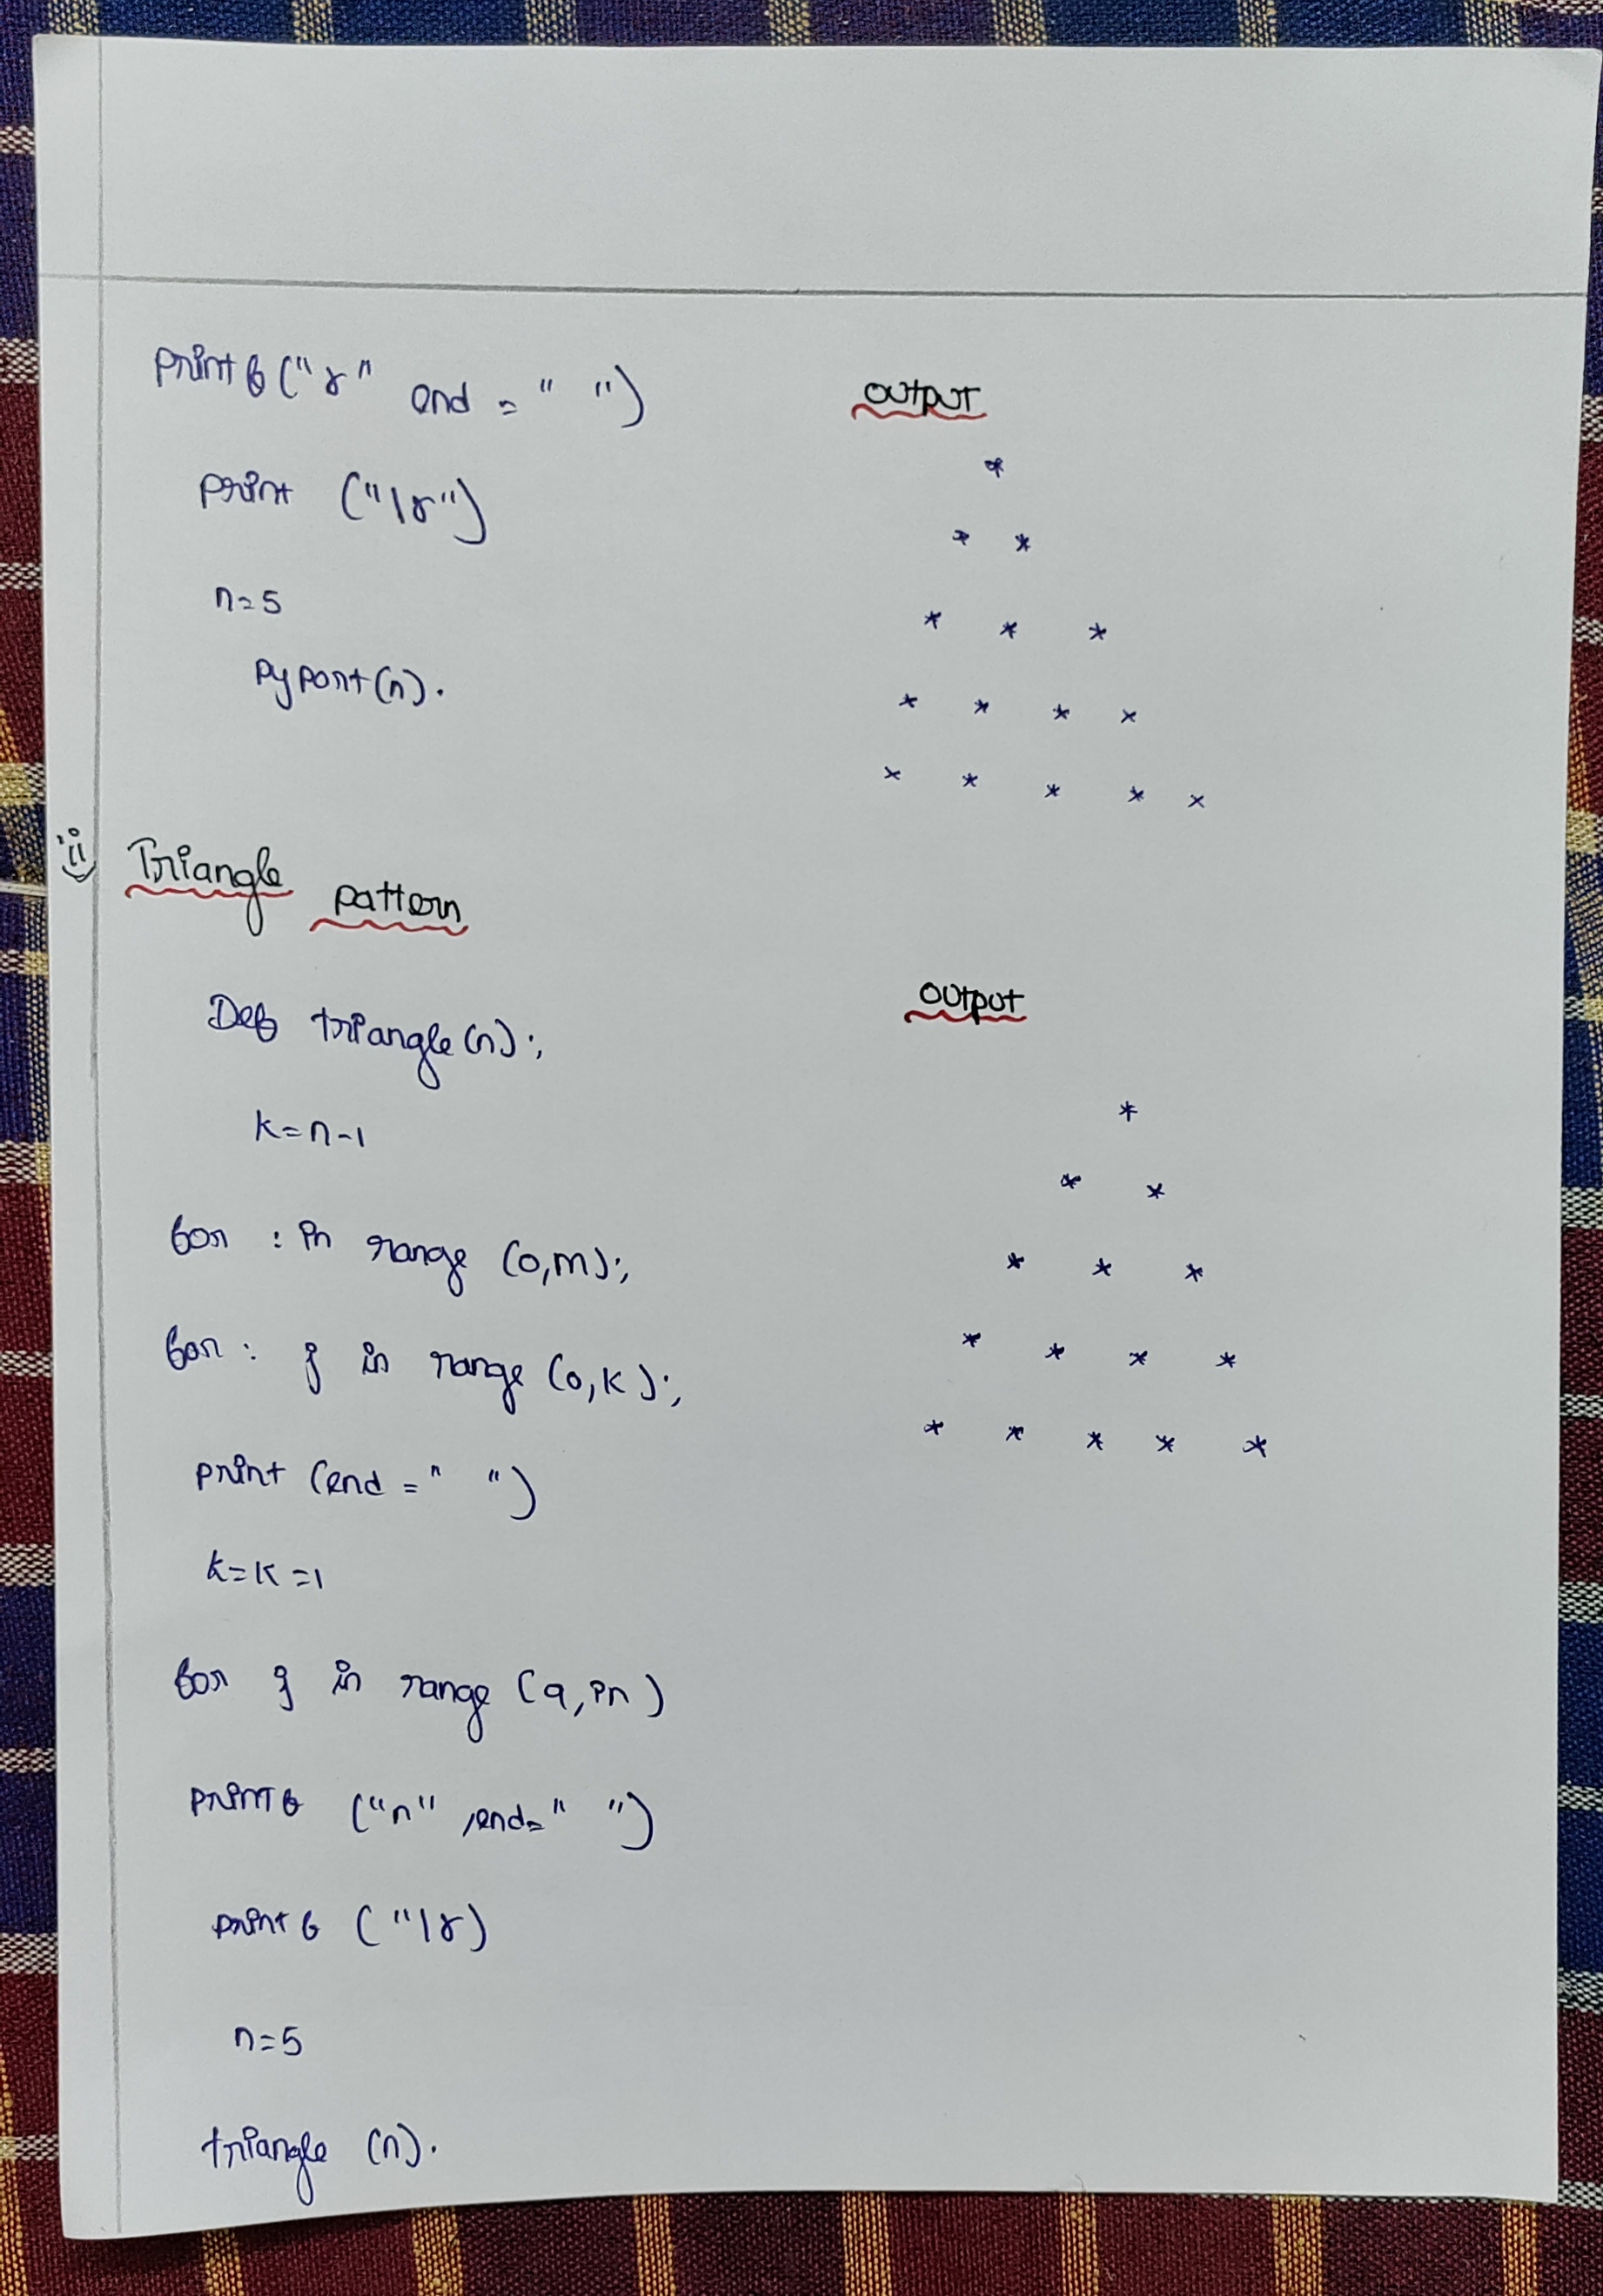 printf("r" end = " ")
print ("\r")
n=5
pypart(n).
output
*
* *
* * *
* * * *
* * * * *
ii) Triangle pattern
Def triangle(n):,
k=n-1
for : in range (0,m):,
for : j in range (0,k):,
print (end = " ")
k=k=1
for j in range (9,in)
printf ("n" ,end=" ")
printf ("\r)
n=5
triangle (n).
output
*
* *
* * *
* * * *
* * * * *